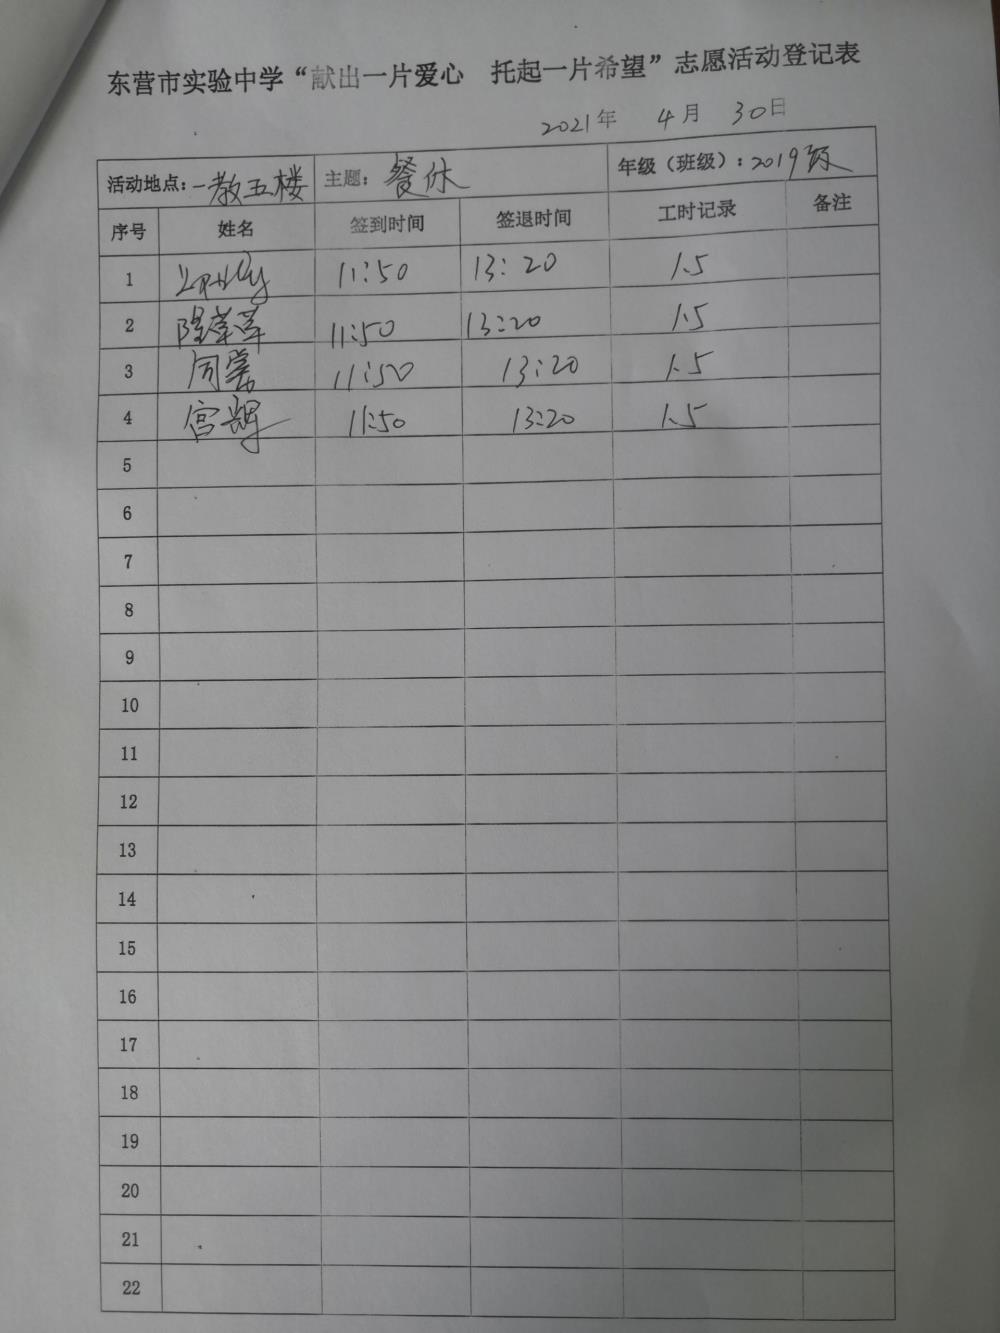 东营市实验中学“献出一片爱心 托起一片希望”志愿活动登记表
2021年 4月 30日
活动地点：一教五楼 主题：餐休 年级（班级）：2019级
序号 姓名 签到时间 签退时间 工时记录 备注
1 11:50 13:20 1.5
2 11:50 13:20 1.5
3 11:50 13:20 1.5
4 11:50 13:20 1.5
5
6
7
8
9
10
11
12
13
14
15
16
17
18
19
20
21
22